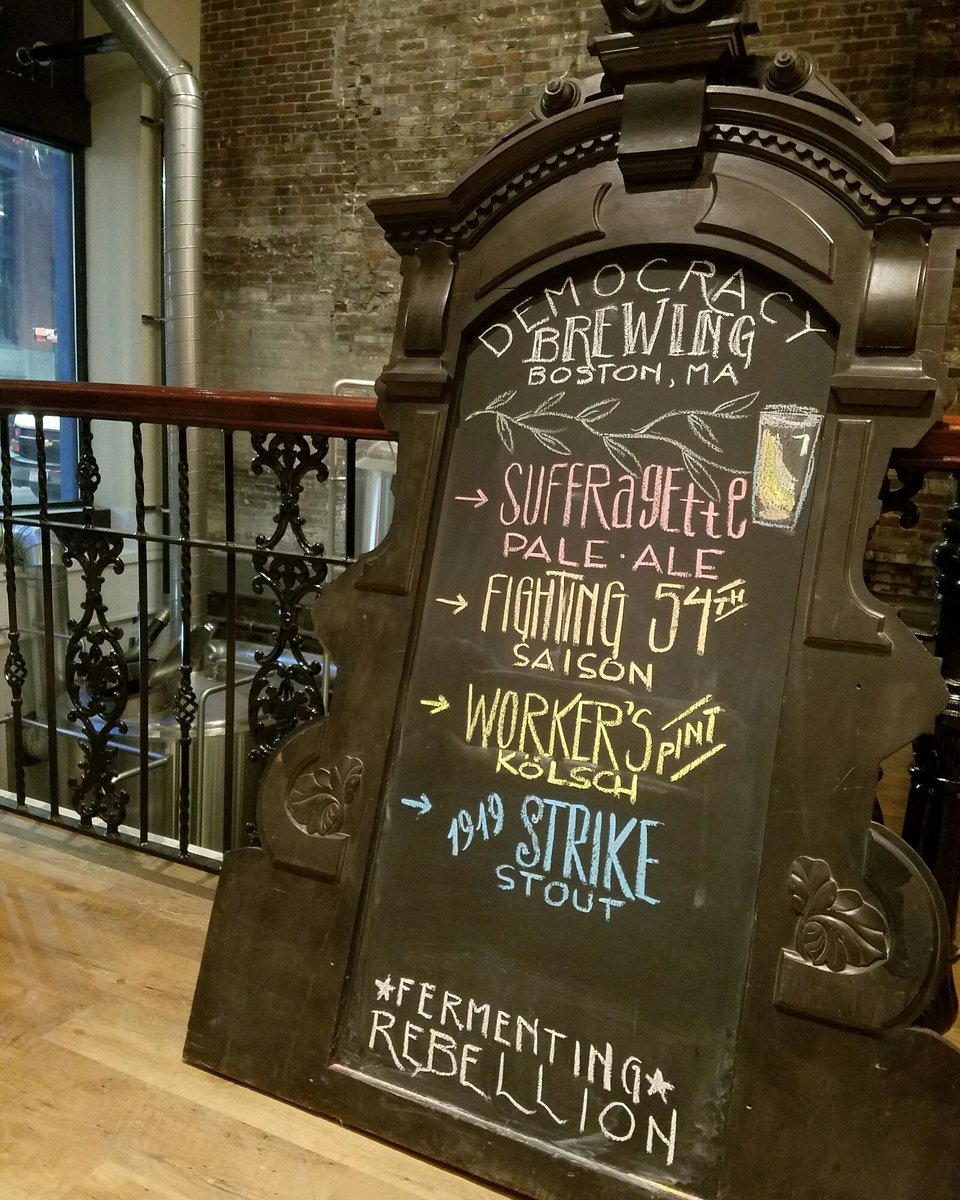 DEMOCRACY
BREWING
BOSTON, MA
→ SUFFRagette
PALE · ALE
→ FIGHTING 54TH
SAISON
→ WORKER'S PINT
KÖLSCH
→ 1919 STRIKE
STOUT
★FERMENTING★
REBELLION